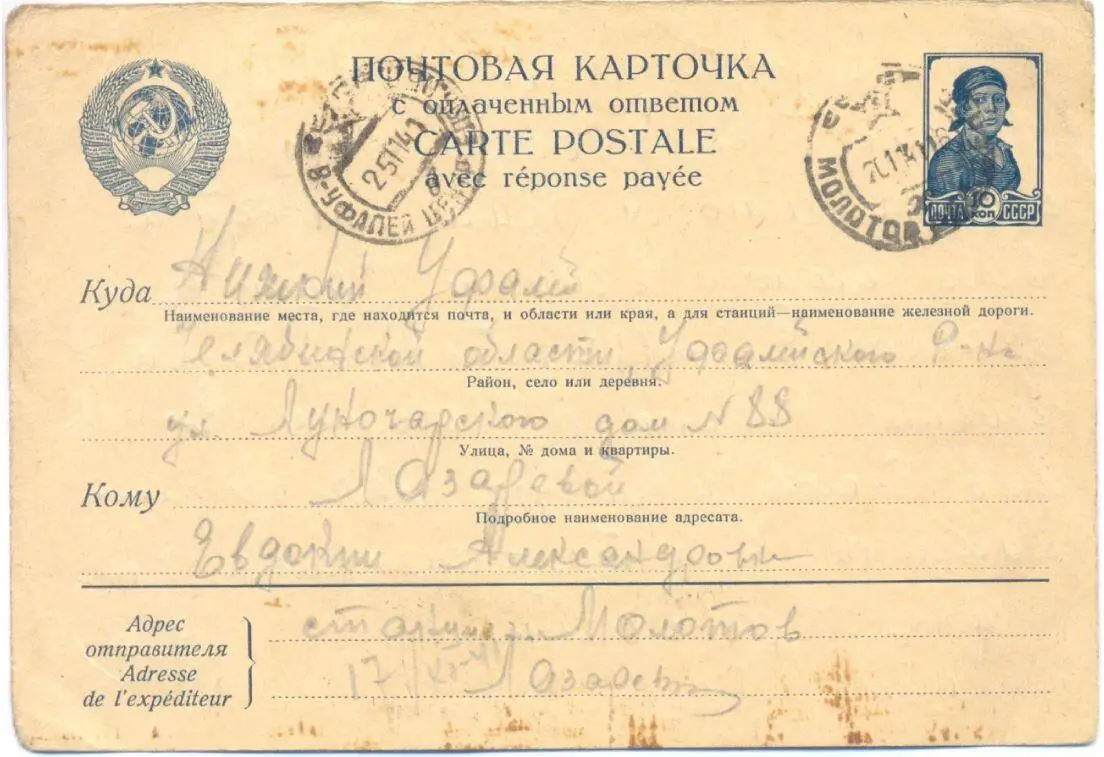 ПОЧТОВАЯ КАРТОЧКА
с оплаченным ответом
CARTE POSTALE
avec réponse payée
В-УФАЛЕЙ
МОЛОТОВ
ПОЧТА 10 КОП СССР
Куда Нижний Уфалей
Наименование места, где находится почта, и области или края, а для станций—наименование железной дороги.
Челябинской области, Уфалейского р-на
Район, село или деревня.
ул. Луночарского дом N 88
Улица, № дома и квартиры.
Кому Лазаревой
Подробное наименование адресата.
Евдокии Александровне
Адрес отправителя
Adresse de l'expéditeur
Молотов
17
Лазарев